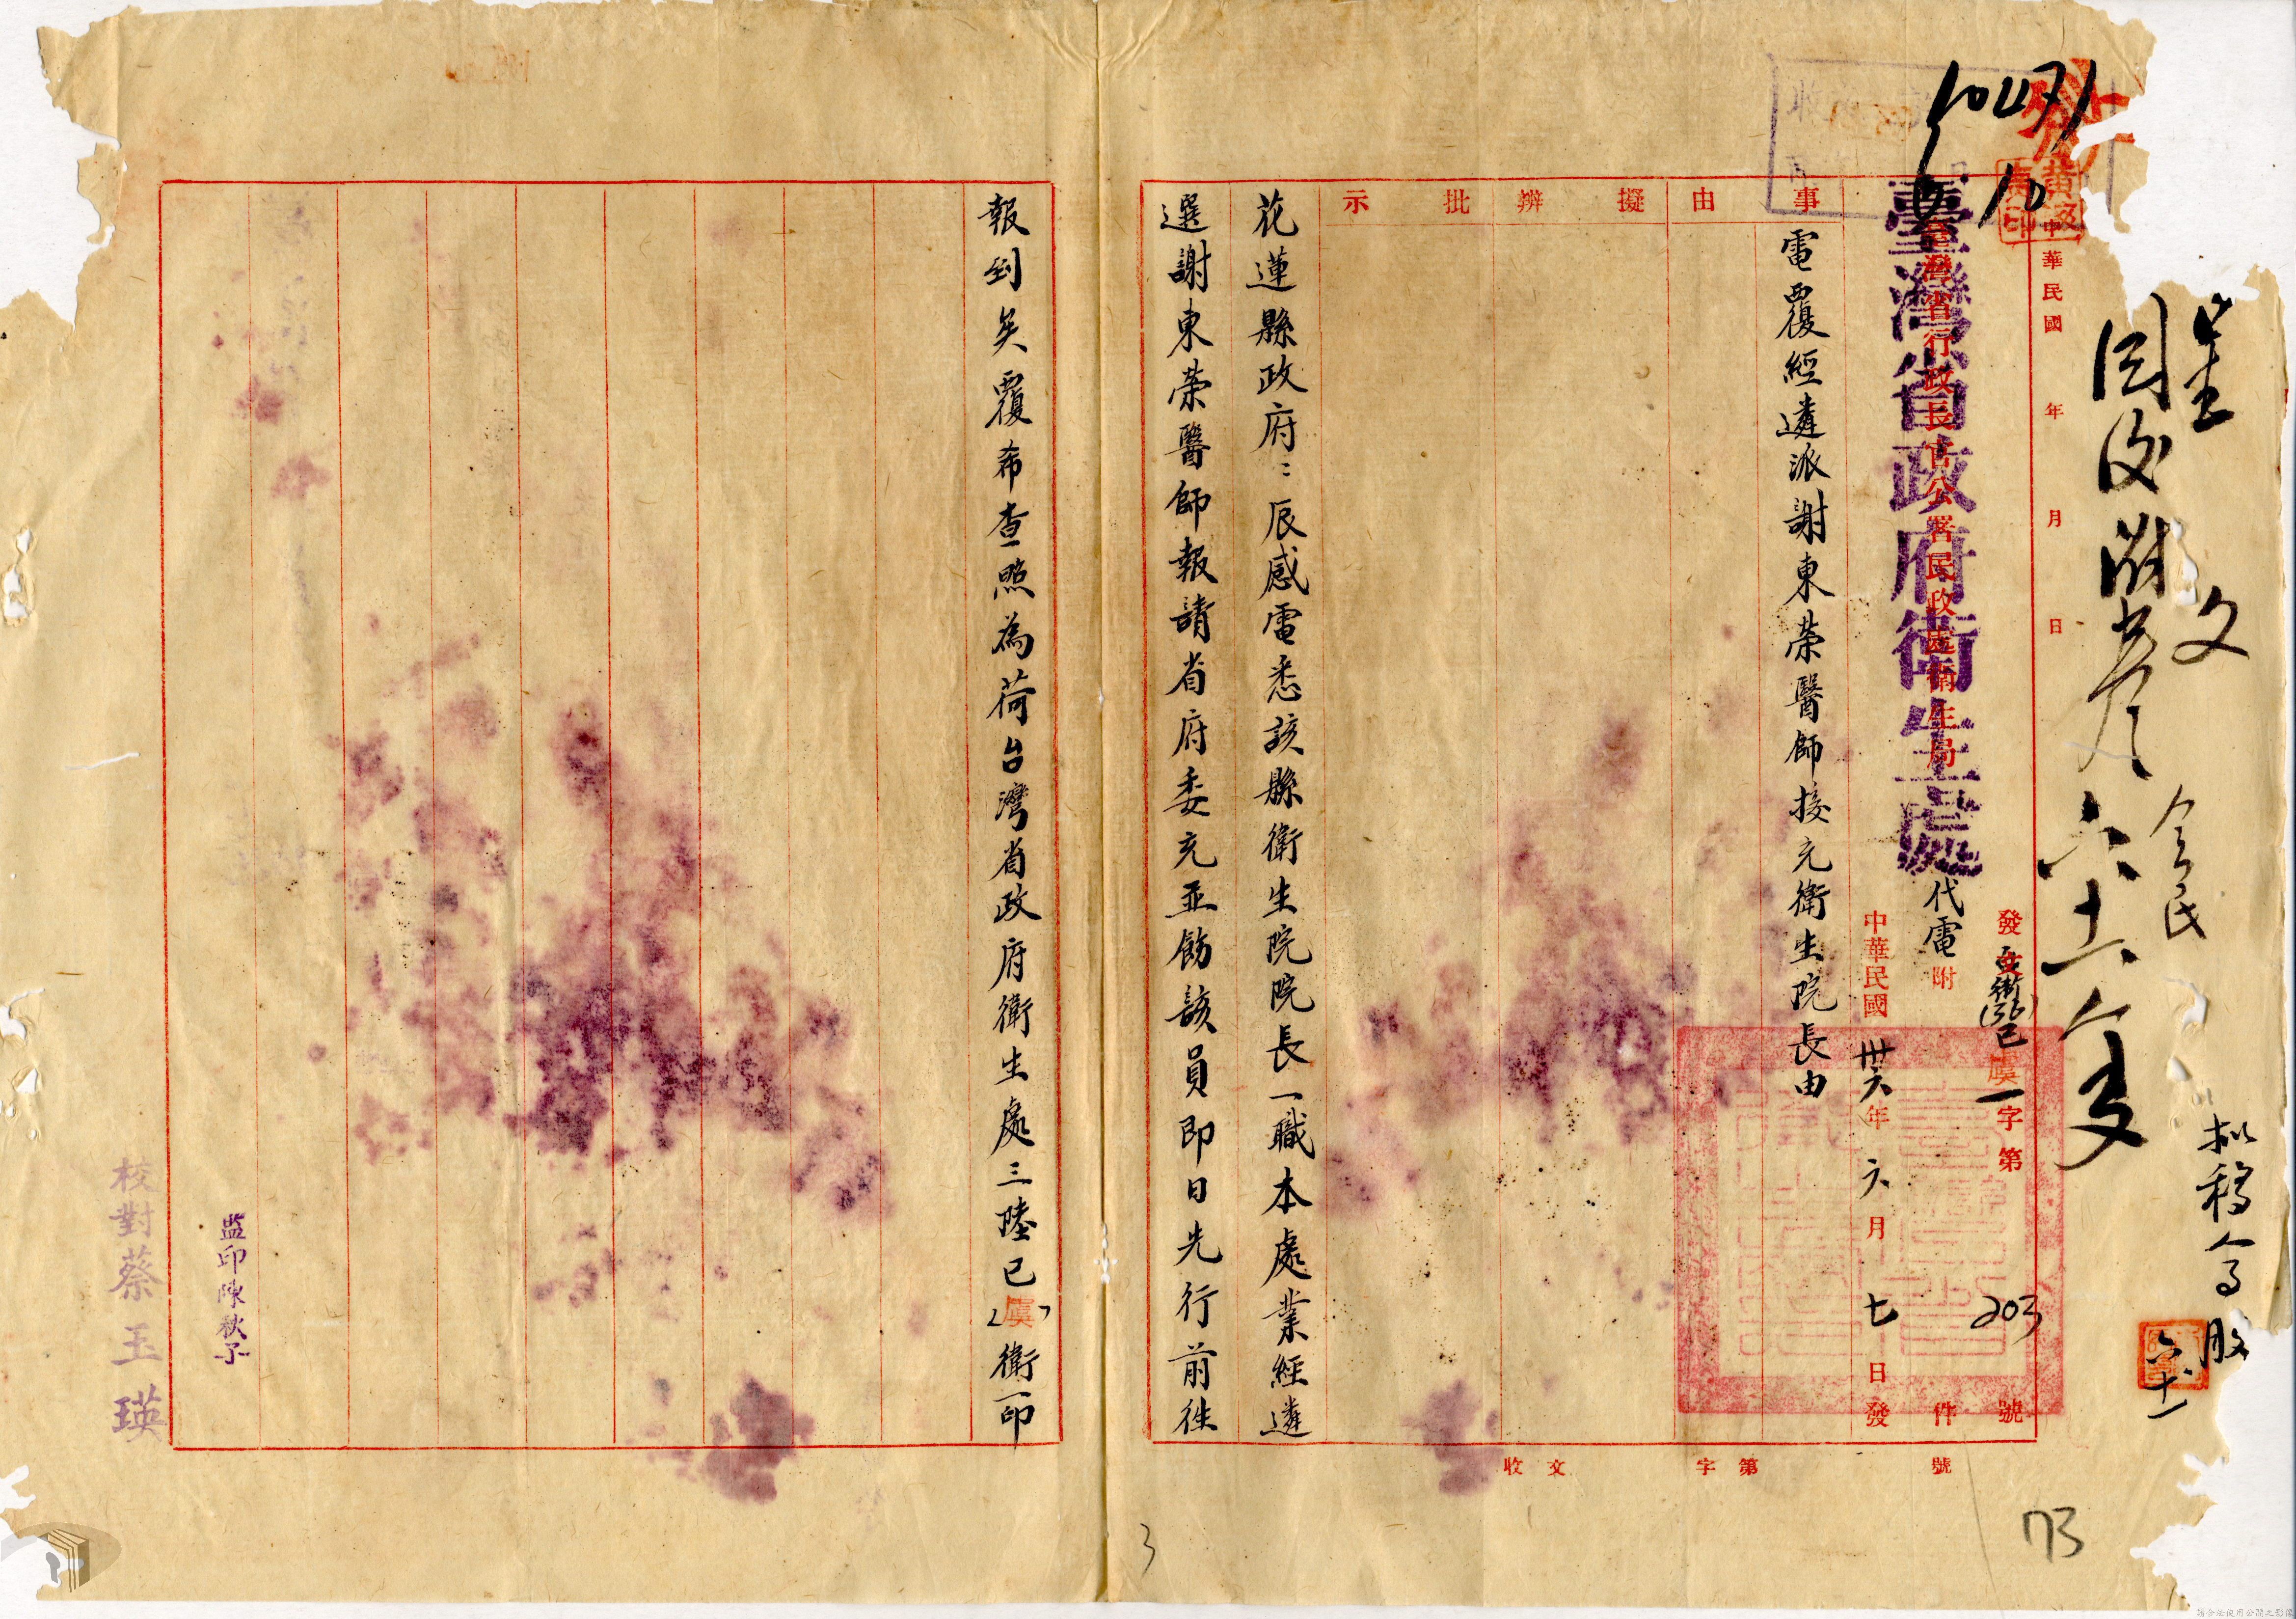 10471
6/10
中華民國 年 月 日
拟稿
六.十一
發文 衛(36)巳虞一字第 203 號
臺灣省行政長官公署民政處衛生局
臺灣省政府衛生處
代電 附 件
中華民國卅六年六月七日發
事由
擬辦
批示
電覆經遴派謝東荣醫師接充衛生院長由
花蓮縣政府：辰感電悉該縣衛生院院長一職本處業經遴
選謝東荣醫師報請省府委充並飭該員即日先行前往
報到矣覆希查照為荷台灣省政府衛生處三陸巳（虞）衛一印
監印陳秋子
校對蔡玉瑛
收文 字第 號
3
173
請合法使用公開之影像